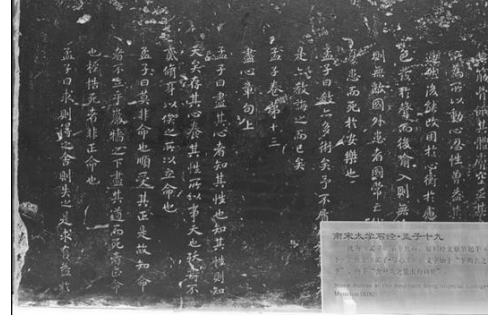 筋骨餓其體膚空乏其
所為所以動心忍性曾益其
過然後能改困於心衡於慮
色發於聲而後喻入則無
則無敵國外患者國常亡
憂患而死於安樂也
孟子曰教亦多術矣予不屑
是亦教誨之而已矣
孟子卷第十三
盡心章句上
孟子曰盡其心者知其性也知其性則知
天矣存其心養其性所以事天也殀壽不
貳脩身以俟之所以立命也
孟子曰莫非命也順受其正是故知命
者不立乎巖墻之下盡其道而死者正命
也桎梏死者非正命也
孟子曰求則得之舍則失之是求有益於
南宋太学石经·孟子十九